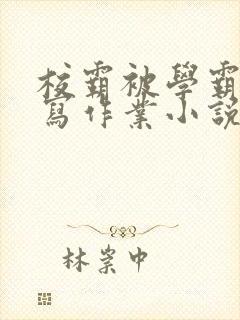 校霸被學霸
寫作業小說
林崇中